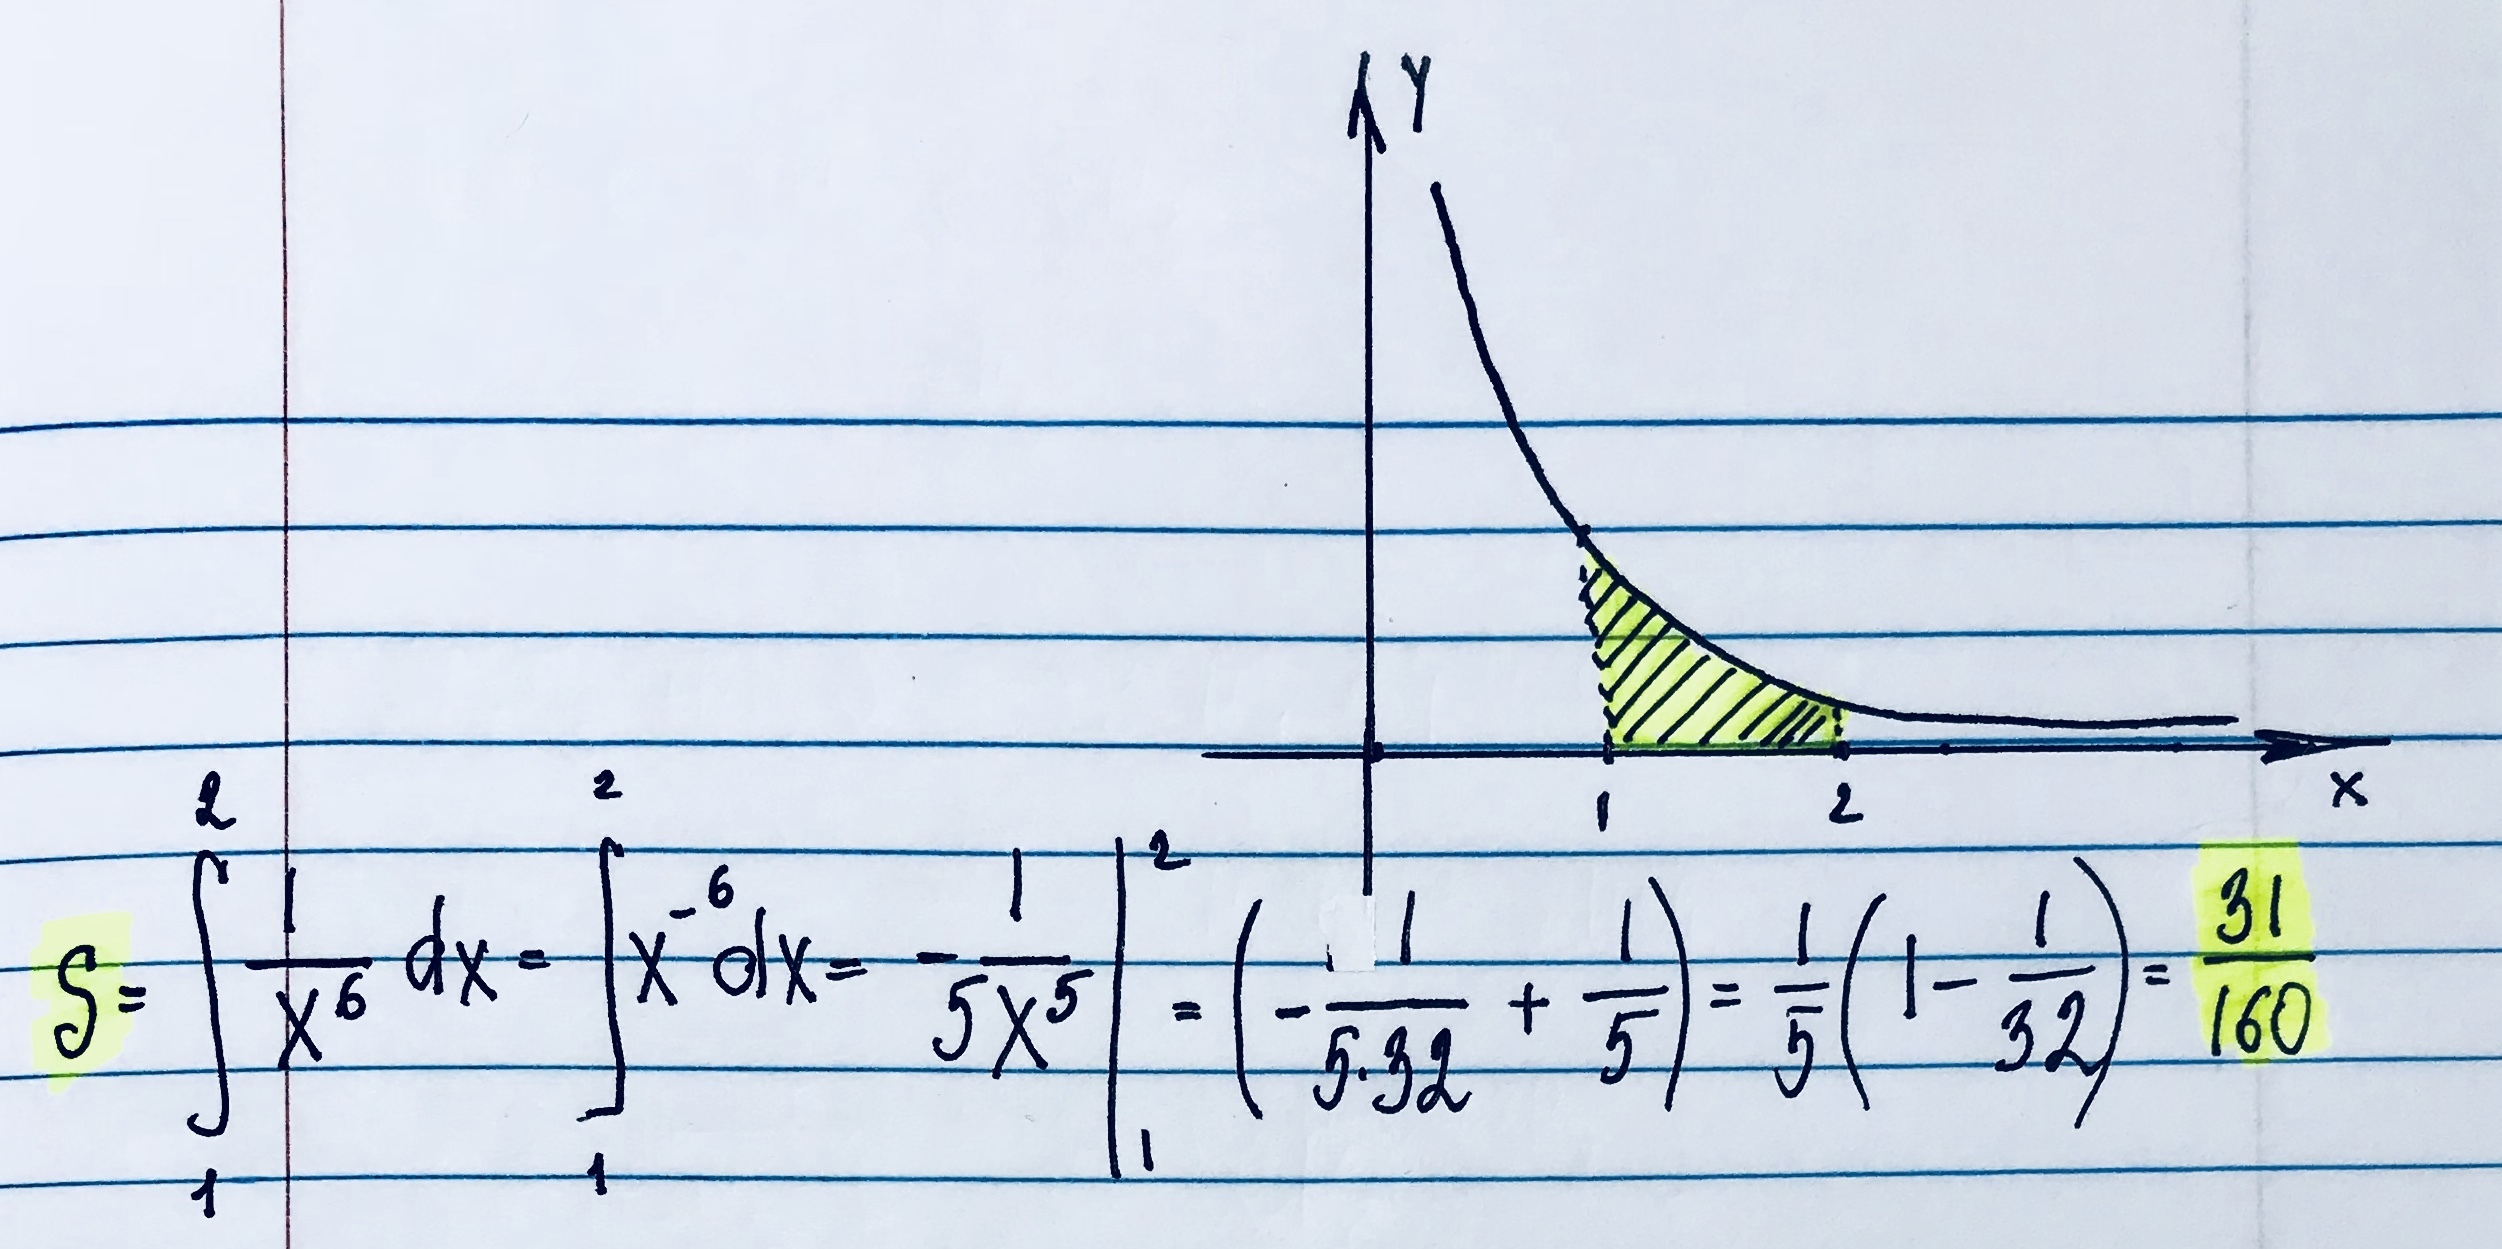 Y
1 2 x
S = ∫₁² 1/x⁶ dx = ∫₁² x⁻⁶ dx = - 1/5x⁵ |₁² = (- 1/5·32 + 1/5) = 1/5 (1 - 1/32) = 31/160